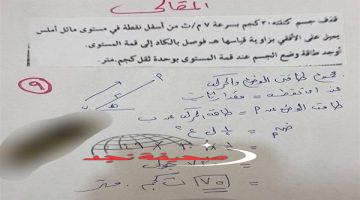 المقالى
قذف جسم كتلته ٣٠ كجم بسرعة ٧ م/ث من أسفل نقطة في مستوى مائل أملس
يميل على الأفقى بزاوية قياسها هـ فوصل بالكاد إلى قمة المستوى.
أوجد طاقة وضع الجسم عند قمة المستوى بوحدة ثقل كجم . متر.
٩
مجموع طاقتى الوضع والحركة
عند أى نقطة = مقدار ثابت
طاقة الوضع عند م = طاقة الحركة عند ب
ض م = ١/٢ ك ع٢
صحيفة نجد
= ٧٥ ث كجم . متر